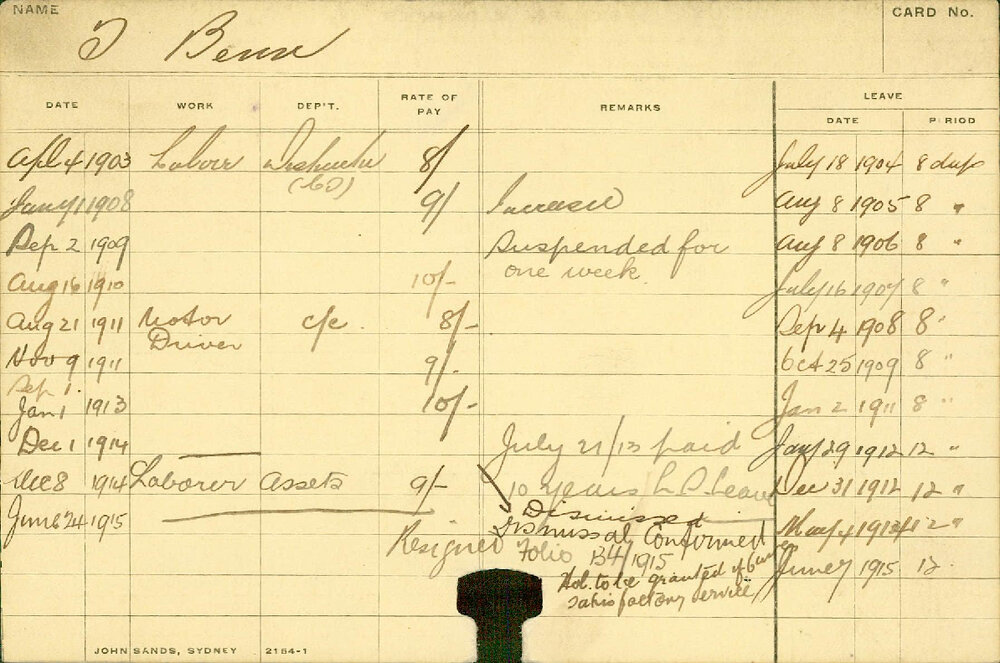 NAME
CARD No.
J Benn
DATE WORK DEP'T. RATE OF PAY REMARKS LEAVE
DATE PERIOD
Apl 4 1903 Labour 8/ July 18 1904 8 days
Jany 1 1908 9/ Increase Aug 8 1905 8 "
Sep 2 1909 Suspended for Aug 8 1906 8 "
one week
Aug 16 1910 10/- July 16 1907 8 "
Aug 21 1911 Motor c/e 8/- Sep 4 1908 8 "
Driver
Nov 9 1911 9/. Oct 25 1909 8 "
Sep 1.
Jan 1 1913 10/- Jan 2 1911 8 "
Dec 1 1914 July 21/13 paid Jany 29 1912 12 "
Dec 8 1914 Laborer Assets 9/- 10 years L.S. Leave Dec 31 1912 12 "
Dismissed
June 24 1915 Dismissal Confirmed May 4 1914 12 "
Resigned Folio 134/1915 June 7 1915 12
Hol. to be granted if
satisfactory service
JOHN SANDS, SYDNEY 2154-1